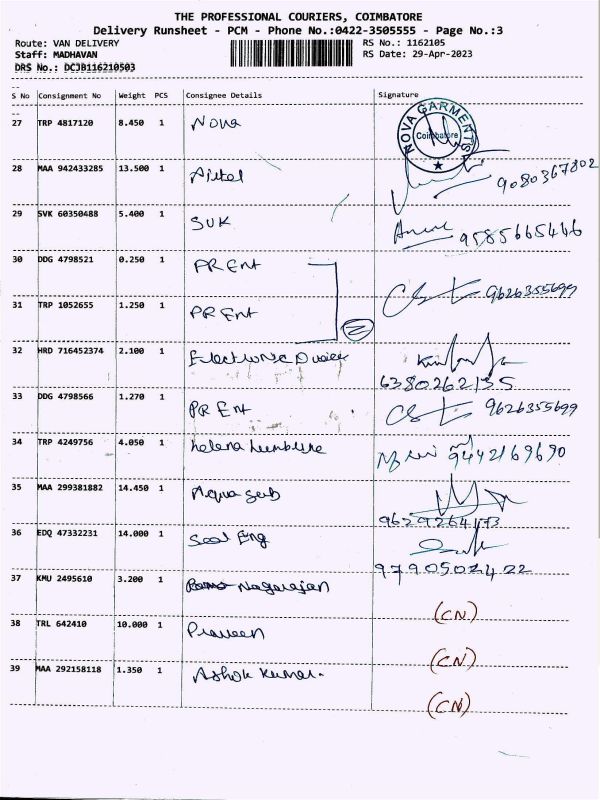 THE PROFESSIONAL COURIERS, COIMBATORE
Delivery Runsheet - PCM - Phone No.:0422-3505555 - Page No.:3
Route: VAN DELIVERY RS No.: 1162105
Staff: MADHAVAN RS Date: 29-Apr-2023
DRS No.: DCJB116210503
S No Consignment No Weight PCS Consignee Details Signature
27 TRP 4817120 8.450 1 Nova NOVA GARMENTS Coimbatore
28 MAA 942433285 13.500 1 Airtel 9080367802
29 SVK 60350488 5.400 1 SUK 9585665446
30 DDG 4798521 0.250 1 PR Ent 9626355699
31 TRP 1052655 1.250 1 PR Ent
32 HRD 716452374 2.100 1 Electronic 6380262135
33 DDG 4798566 1.270 1 PR Ent 9626355699
34 TRP 4249756 4.050 1 helena 9442169690
35 MAA 299381882 14.450 1 Aqua sub 9629264173
36 EDQ 47332231 14.000 1 Seal Eng 9790502422
37 KMU 2495610 3.200 1 Nagarajan (CN)
38 TRL 642410 10.000 1 Praveen (CN)
39 MAA 292158118 1.350 1 Ashok Kumar. (CN)